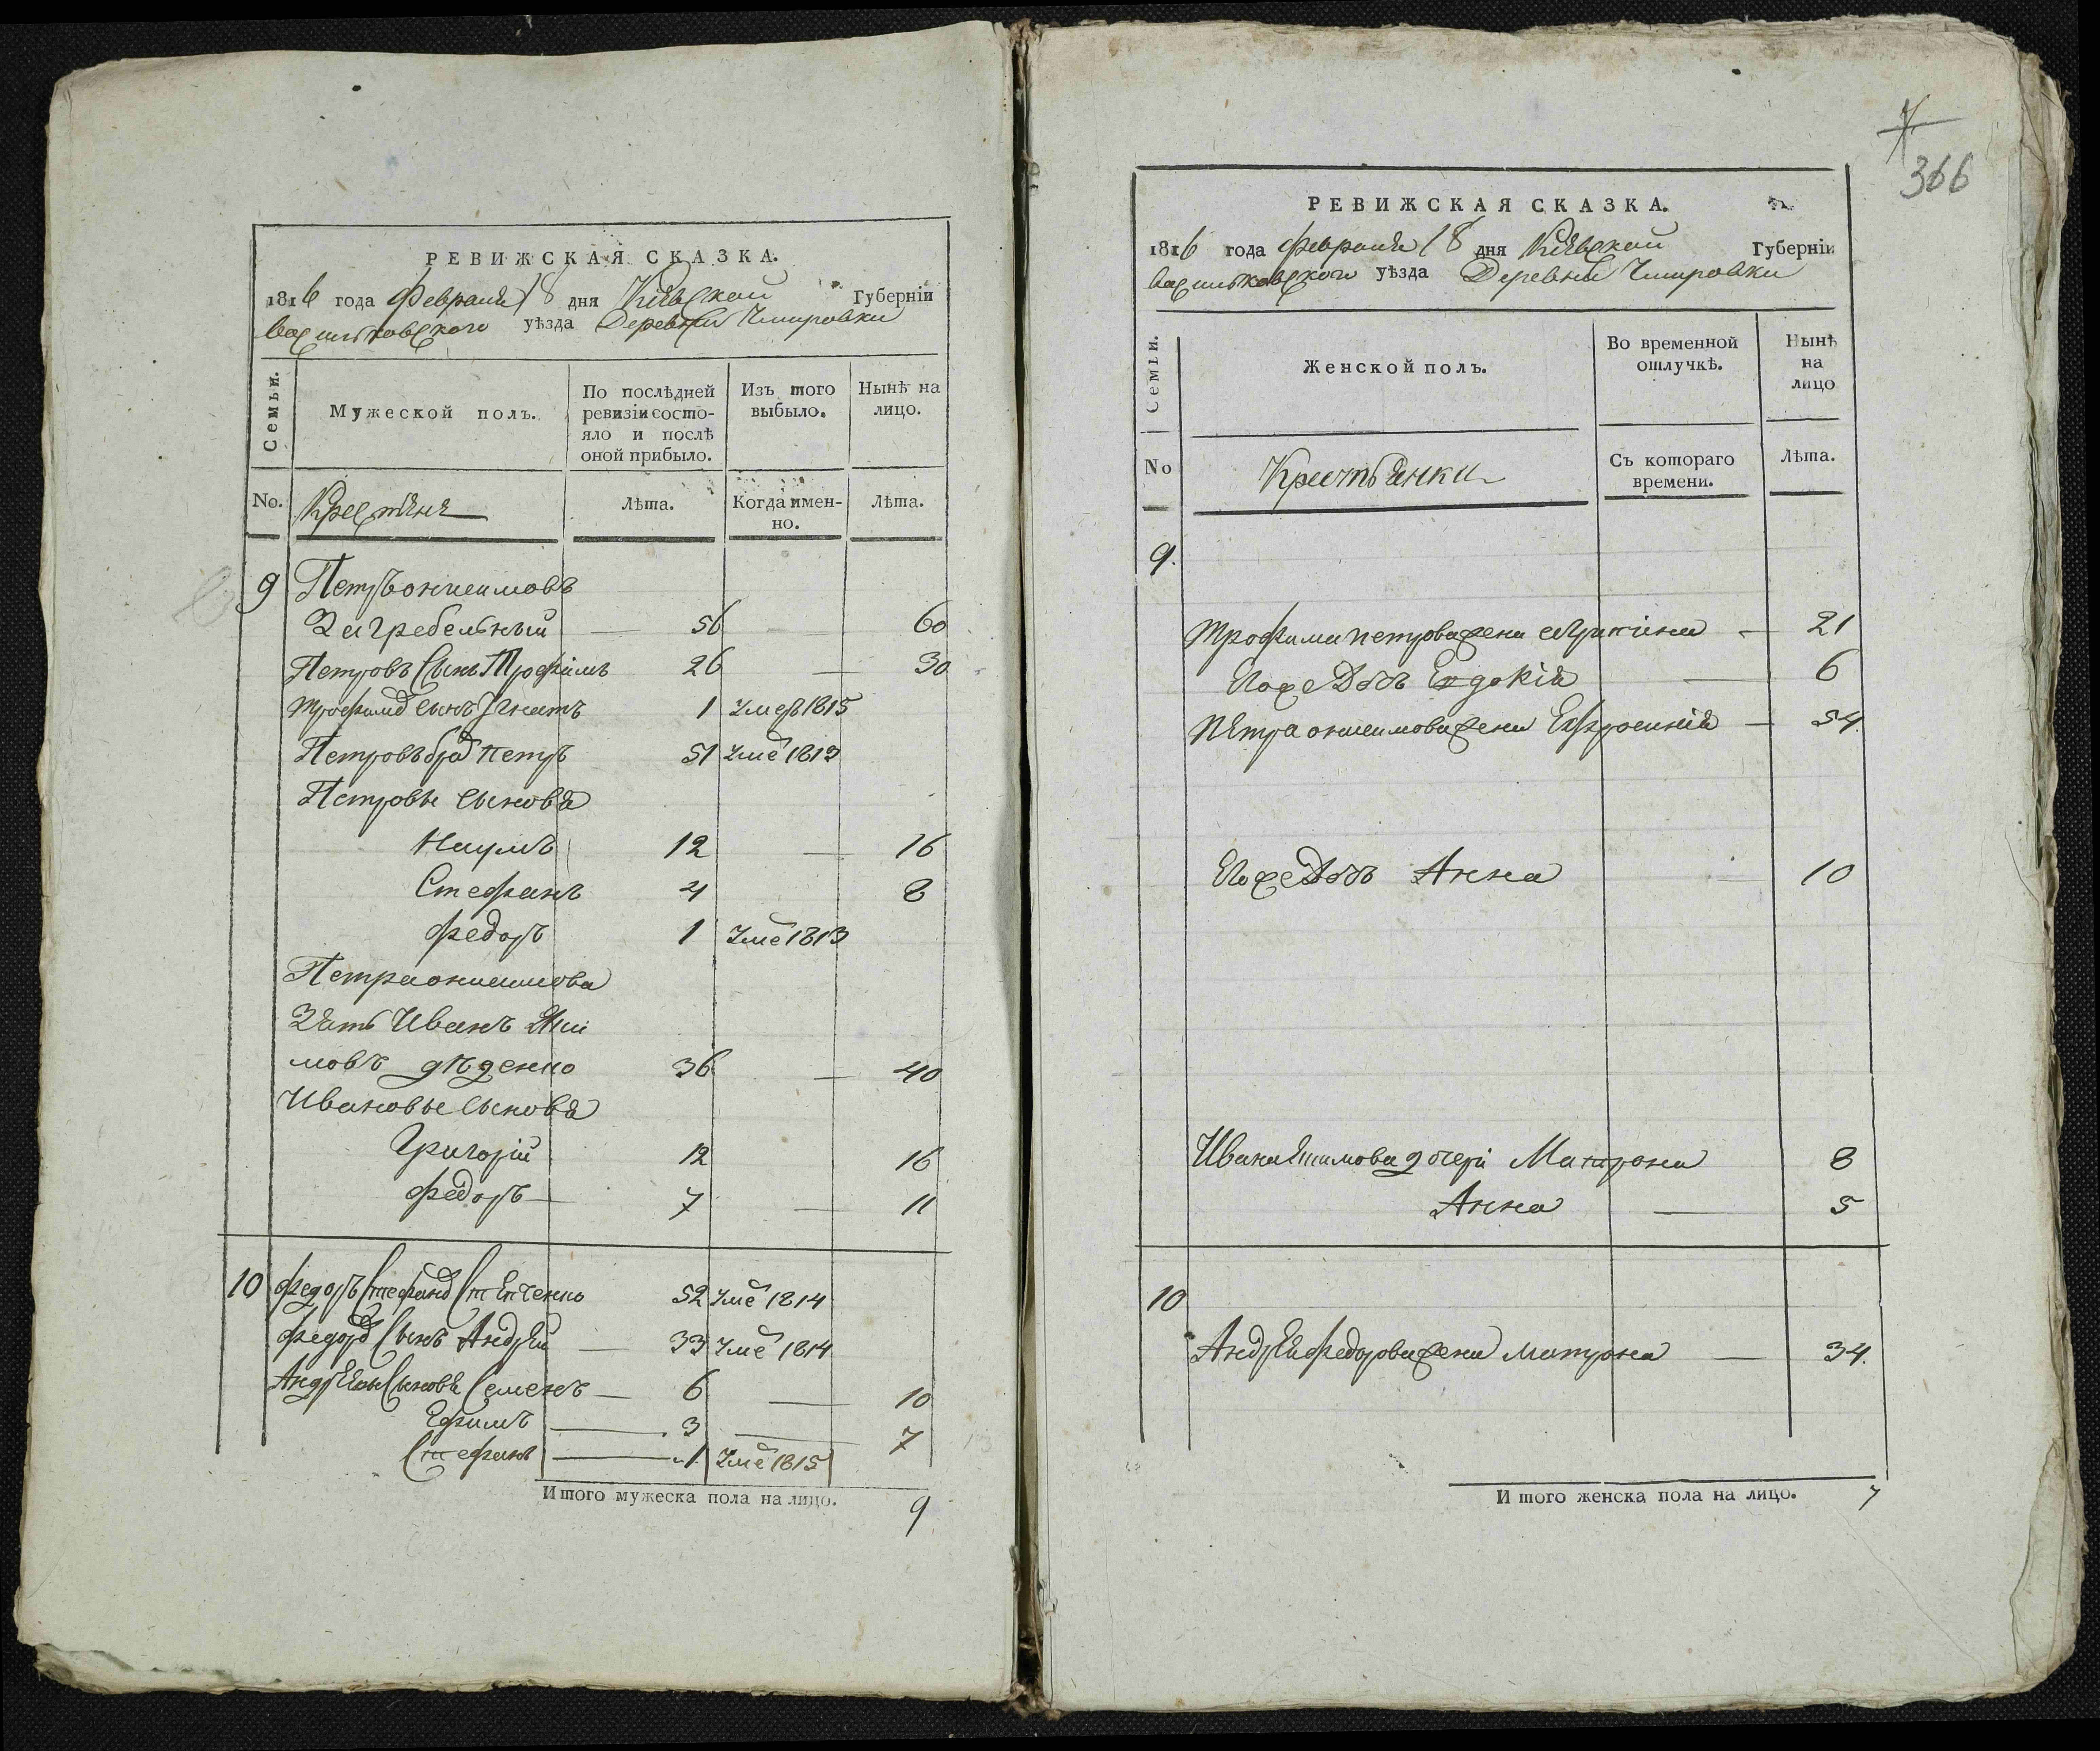 РЕВИЖСКАЯ СКАЗКА.
1816 года Февраля 18 дня Кіевской Губерніи
васильковского уѣзда Деревни
Семьи.
Мужеской полъ.
По послѣдней ревизіи состо-
яло и послѣ
оной прибыло.
Изъ того
выбыло.
Нынѣ на
лицо.
No.
Лѣта.
Когда имен-
но.
Лѣта.
9 Петръ онисимовъ
Загребельный 56 60
Петровъ Сынъ Трофимъ 26 30
сынъ Игнатъ 1 Умеръ 1815
Петровъ бра петръ 51 Уме 1813
Петровы сыновя
Наумъ 12 16
Стефанъ 4 8
федоръ 1 Уме 1813
Петра онисимова
Зять Иванъ Яки
мовъ 36 40
Ивановы сыновя
Григорій 12 16
федоръ 7 11
10 федоръ 52 Уме 1814
Сынъ Андрей 33 Уме 1814
Сыновя Семенъ 6 10
Ефимъ 3 7
Стефанъ 1 Уме 1815
Итого мужеска пола на лицо. 9
366
РЕВИЖСКАЯ СКАЗКА.
1816 года февраля 18 дня Кіевской Губерніи
васильковского уѣзда Деревни
Семьи.
Женской полъ.
Во временной
отлучкѣ.
Нынѣ
на
лицо
No
Крестьянки
Съ котораго
времени.
Лѣта.
9.
Трофима петрова жена 21
Его же Дочь Евдокія 6
Петра онисимова жена Ефросинія 54.
Его же Дочь Анна 10
Ивана Якимова дочери Матрона 8
Анна 5
10
Андрея федорова жена матрона 34.
Итого женска пола на лицо. 7